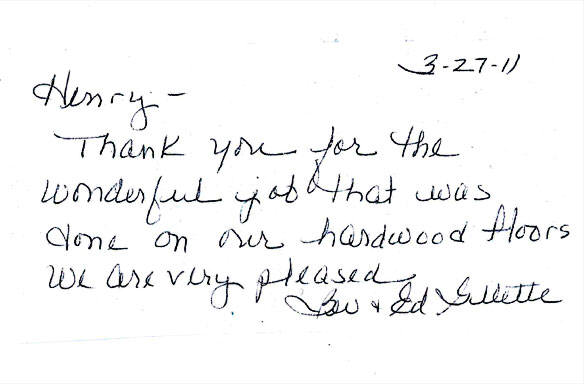 3-27-11
Henry -
Thank you for the
wonderful job that was
done on our hardwood floors
We are very pleased
Bev & Ed Gillette